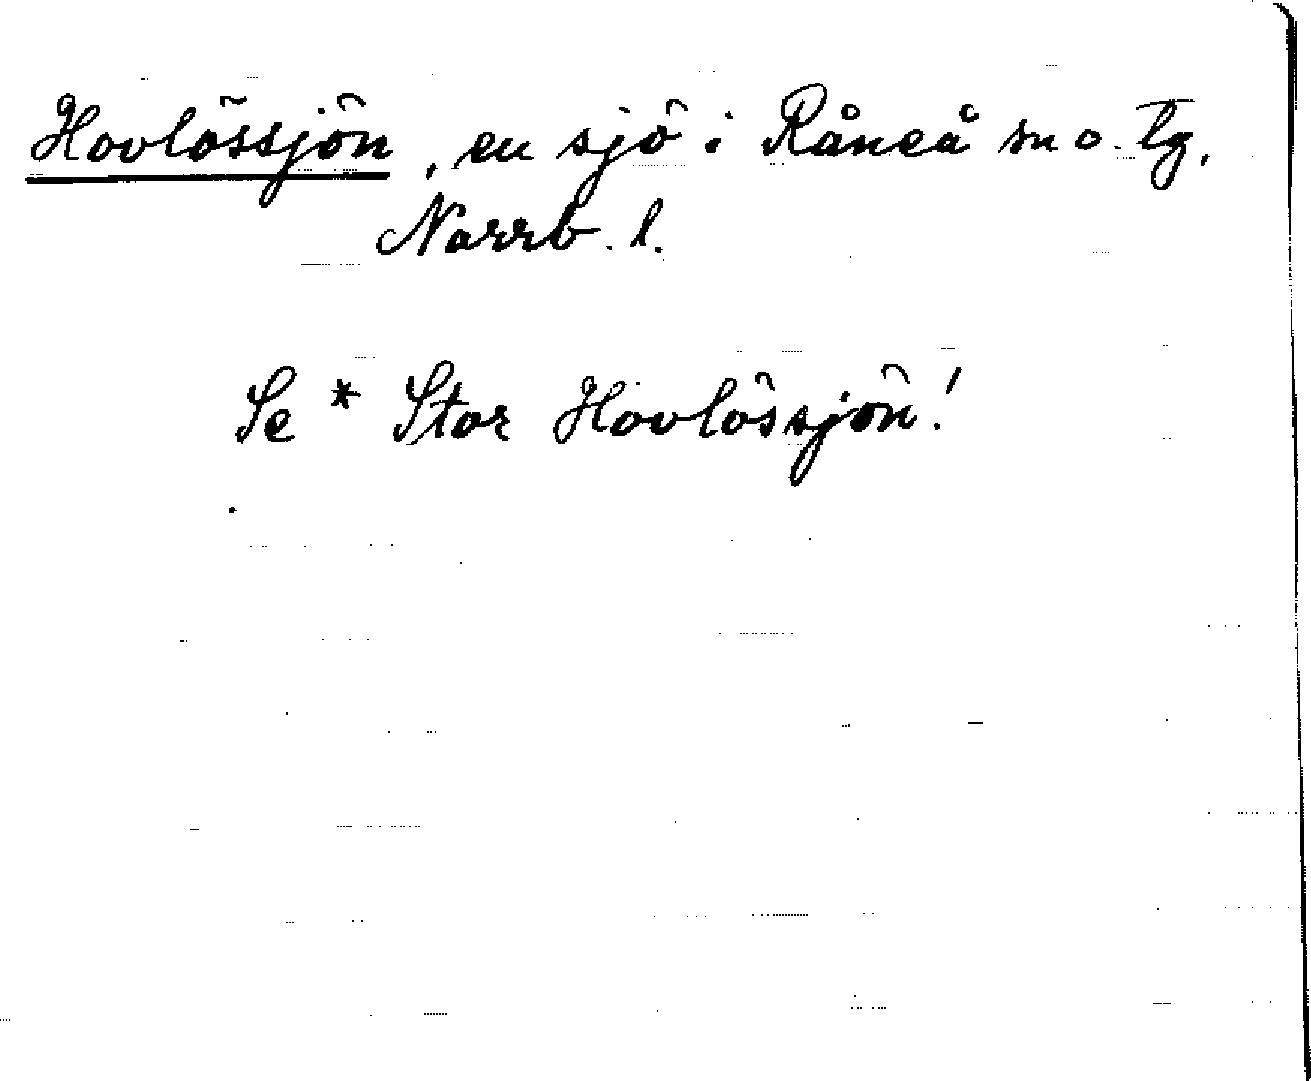 Hovlössjön, en sjö i Råneå sn o. tg.
Norrb. l.
Se * Stor Hovlössjön!